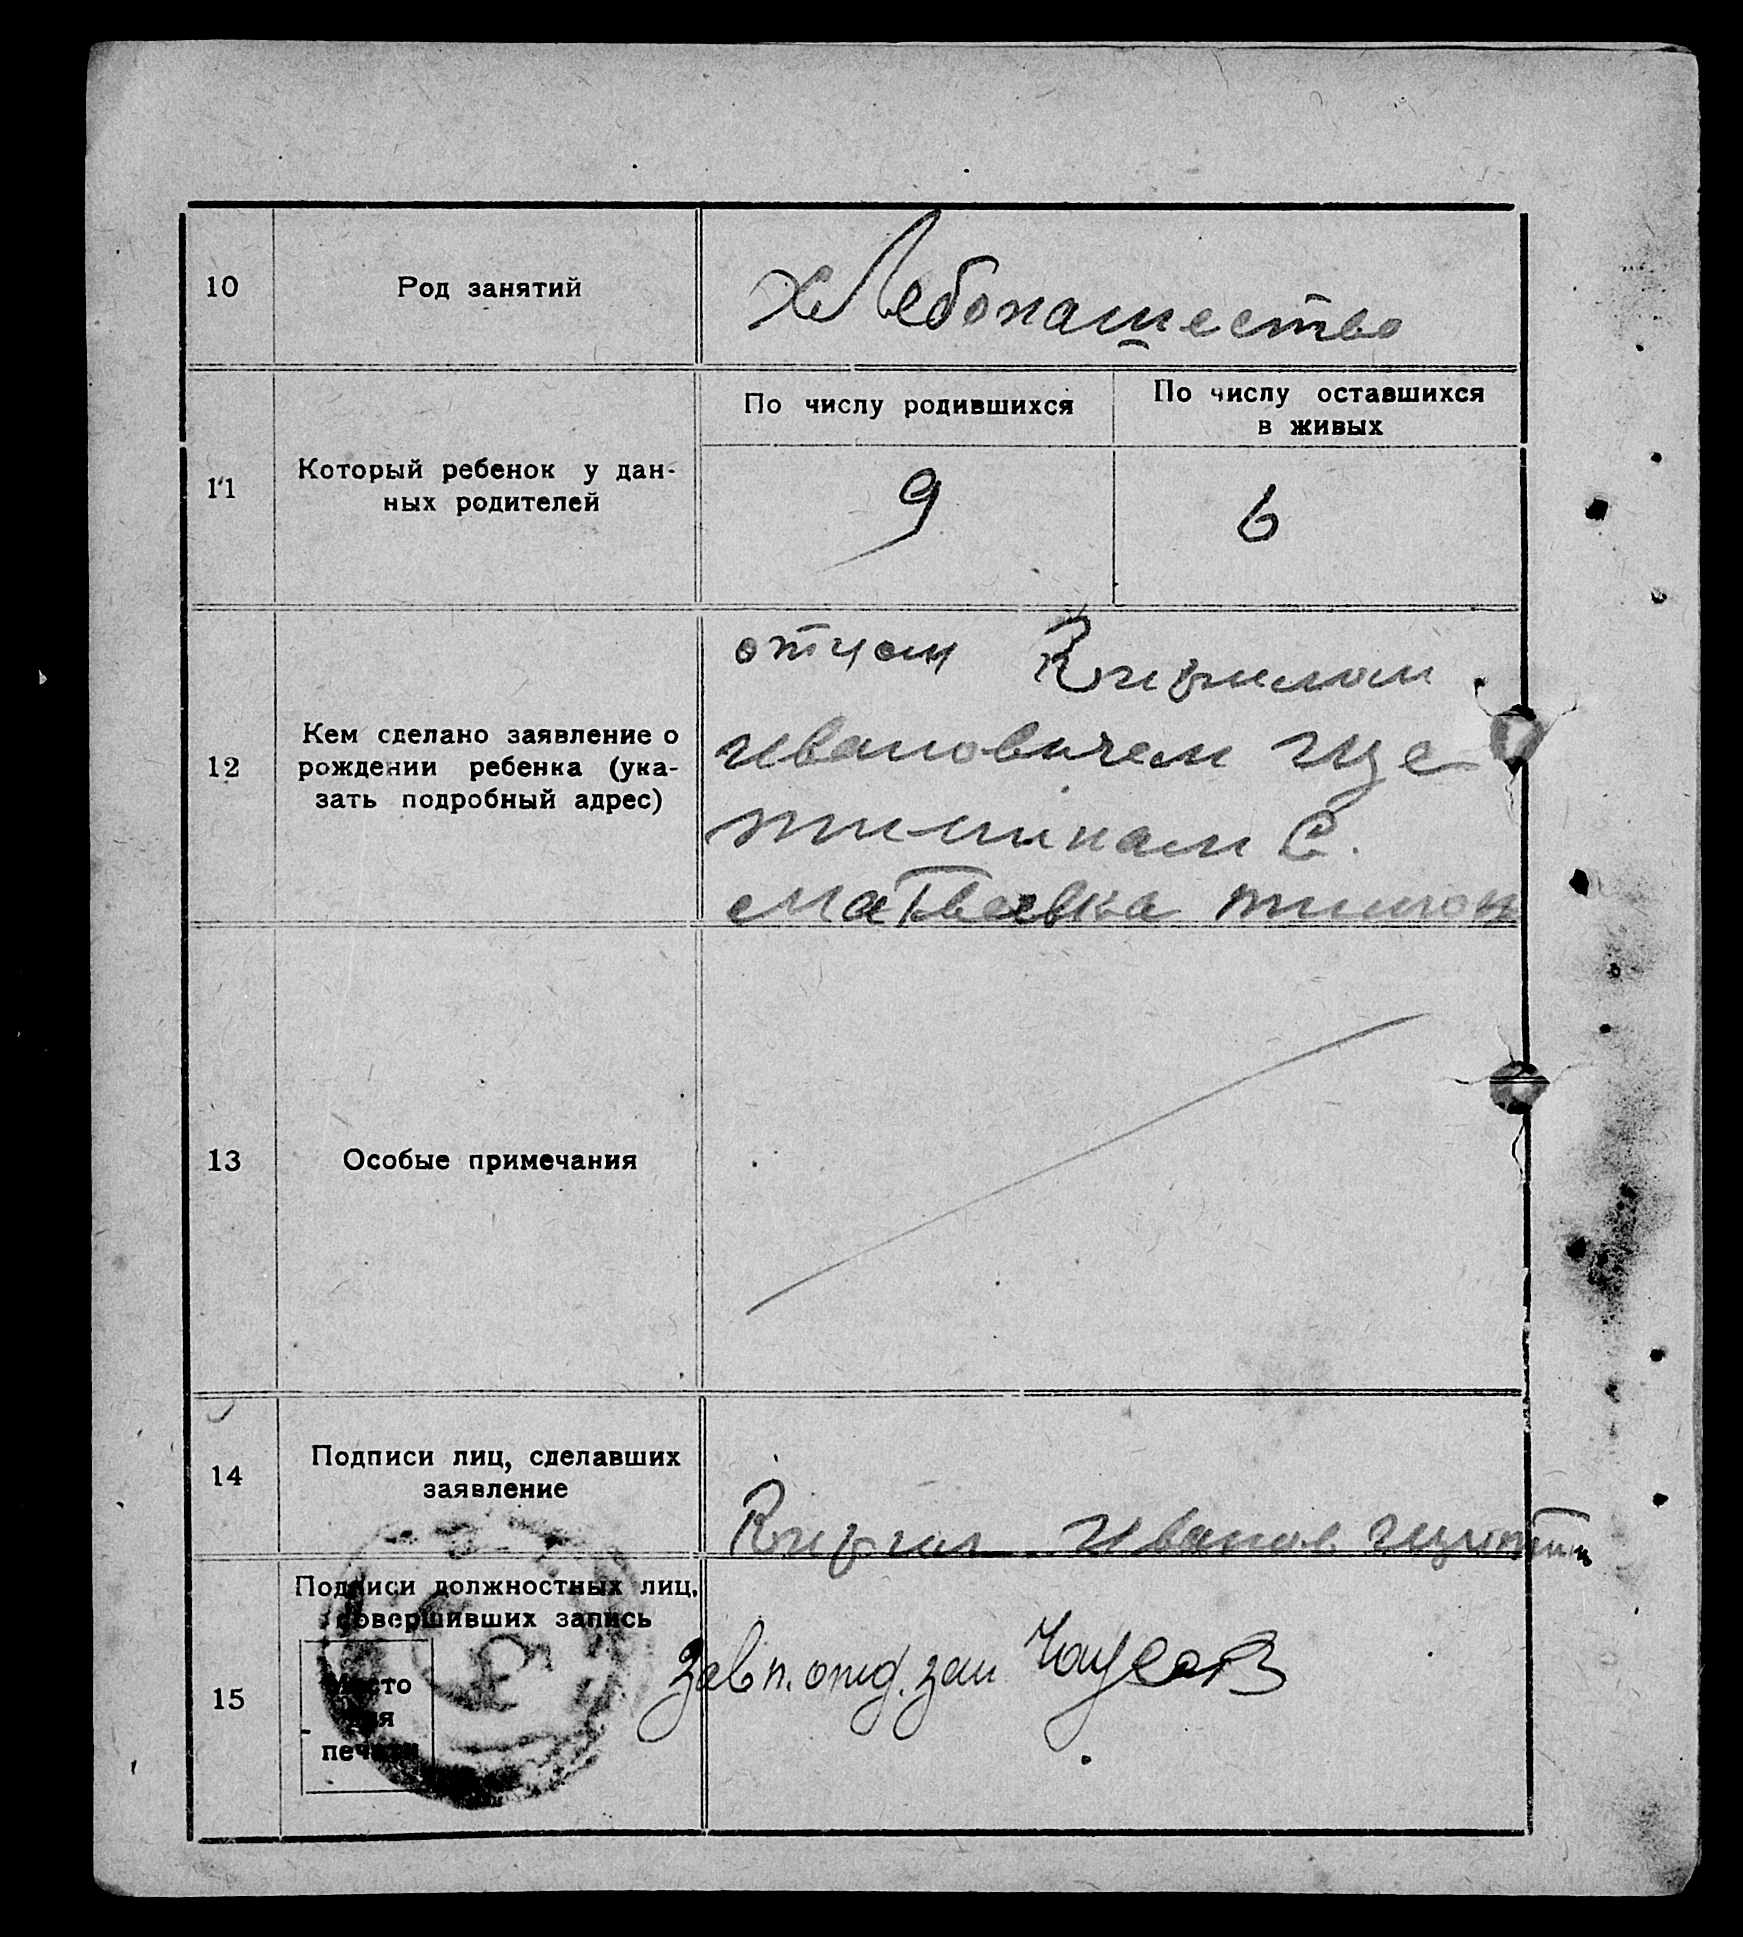 10
Род занятий
хлебопашество
11
Который ребенок у дан-
ных родителей
По числу родившихся
По числу оставшихся
в живых
9
6
12
Кем сделано заявление о
рождении ребенка (ука-
зать подробный адрес)
отцом Кирилом
Ивановичем Ще
С.
Матвеевка
13
Особые примечания
14
Подписи лиц, сделавших
заявление
Кирил Иванов
15
Подписи должностных лиц,
совершивших запись
Место
для
печати
Зав п. отд. зап Чаусов